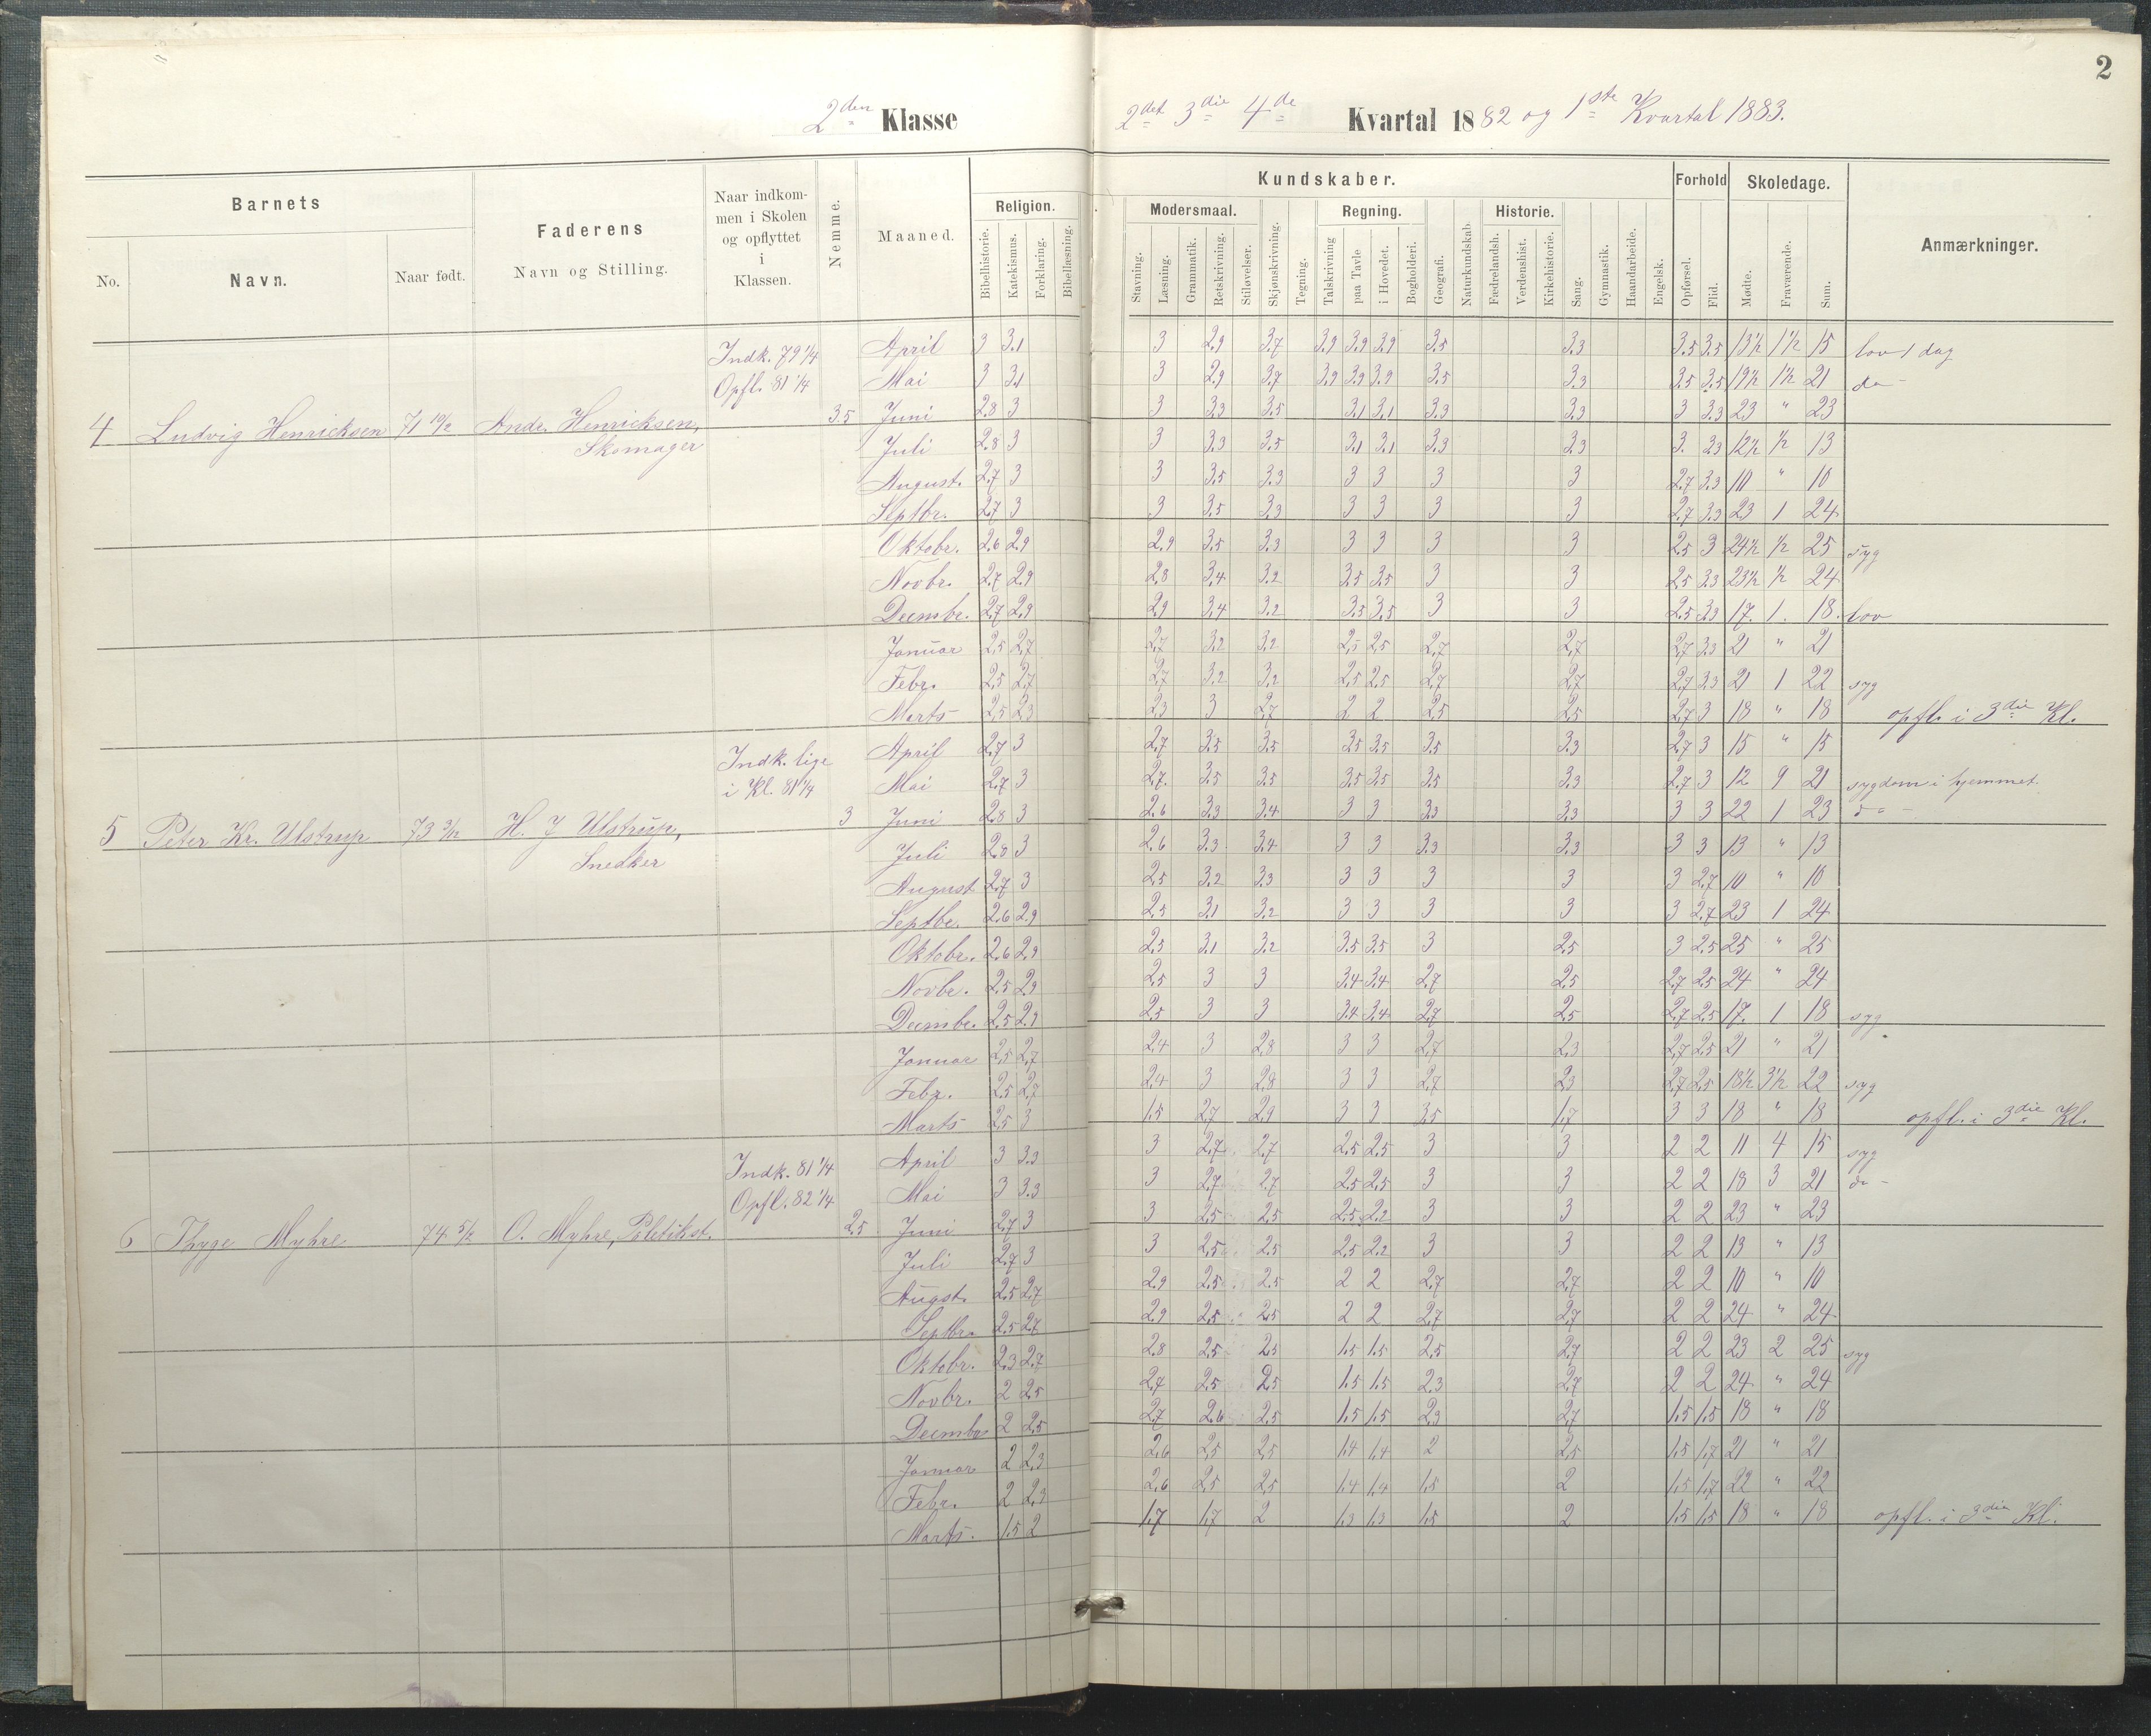 2
2den Klasse
2det 3die 4de Kvartal 1882 og 1ste Kvartal 1883.
Barnets | Faderens Navn og Stilling. | Naar indkommen i Skolen og opflyttet i Klassen. | Nemme. | Maaned. | Religion. | Kundskaber. | Forhold | Skoledage. | Anmærkninger.
Modersmaal. | Regning. | Historie.
No. | Navn. | Naar født. | Bibelhistorie. | Katekismus. | Forklaring. | Bibellæsning. | Stavning. | Læsning. | Grammatik. | Retskrivning. | Stiløvelser. | Skjønskrivning. | Tegning. | Talskrivning | paa Tavle | i Hovedet. | Bogholderi. | Geografi. | Naturkundskab. | Fædrelandsh. | Verdenshist. | Kirkehistorie. | Sang. | Gymnastik. | Haandarbeide. | Engelsk. | Opførsel. | Flid. | Mødte. | Fraværende. | Sum.
Indk. 79 1/4 April 3 3.1 3 2.9 3.7 3.9 3.9 3.9 3.5 3.3 3.5 3.5 13½ 1½ 15 lov 1 dag
Opfl. 81 1/4 Mai 3 3.1 3 2.9 3.7 3.9 3.9 3.9 3.5 3.3 3.5 3.5 19½ 1½ 21 do -
4 Ludvig Henricksen 71 10/12 Andr. Henricksen, 3.5 Juni 2.8 3 3 3.3 3.5 3.1 3.1 3.3 3.3 3 3.3 23 " 23
Skomager Juli 2.8 3 3 3.3 3.5 3.1 3.1 3.3 3.3 3. 3.3 12½ ½ 13
August. 2.7 3 3 3.5 3.3 3 3 3 3 2.7 3.3 10 " 10
Septbr. 2.7 3 3 3.5 3.3 3 3 3 3 2.7 3.3 23 1 24
Oktobr. 2.6 2.9 2.9 3.5 3.3 3 3 3 3 2.5 3 24½ ½ 25 syg
Novbr. 2.7 2.9 2.8 3.4 3.2 3.5 3.5 3 3 2.5 3.3 23½ ½ 24
Decmbr. 2.7 2.9 2.9 3.4 3.2 3.5 3.5 3 3 2.5 3.3 17. 1. 18. lov
Januar 2.5 2.7 2.7 3.2 3.2 2.5 2.5 2.7 2.7 2.7 3.3 21 " 21
Febr. 2.5 2.7 2.7 3.2 3.2 2.5 2.5 2.7 2.7 2.7 3.3 21 1 22 syg
Marts 2.5 2.3 2.3 3 2.7 2 2 2.5 2.5 2.7 3 18 " 18 opfl. i 3die Kl.
Indk. lige April 2.7 3 2.7 3.5 3.5 3.5 3.5 3.5 3.3 2.7 3 15 " 15
i Kl. 81 1/4 Mai 2.7 3 2.7. 3.5 3.5 3.5 3.5 3.5 3.3 2.7 3 12 9 21 sygdom i hjemmet.
5 Peter Kr. Ulstrup 73 3/12 H. J Ulstrup, 3 Juni 2.8 3 2.6 3.3 3.4 3 3 3.3 3.3 3 3 22 1 23 do -
Snedker Juli 2.8 3 2.6 3.3 3.4 3 3 3.3 3.3 3 3 13 " 13
August 2.7 3 2.5 3.2 3.3 3 3 3 3 3 2.7 10 " 10
Septbr. 2.6 2.9 2.5 3.1 3.2 3 3 3 3 3 2.7 23 1 24
Oktobr. 2.6 2.9 2.5 3.1 3.2 3.5 3.5 3 2.5 3 2.5 25 " 25
Novbr. 2.5 2.9 2.5 3 3 3.4 3.4 2.7 2.5 2.7 2.5 24 " 24
Decmbr. 2.5 2.9 2.5 3 3 3.4 3.4 2.7 2.5 2.7 2.5 17. 1 18 syg
Januar 2.5 2.7 2.4 3 2.8 3 3 2.7 2.3 2.7 2.5 21 " 21
Febr. 2.5 2.7 2.4 3 2.8 3 3 2.7 2.3 2.7 2.5 18½ 3½ 22 syg
Marts 2.5 3 1.5 2.7 2.9 3 3 3.5 1.7 3 3 18 " 18 opfl. i 3die Kl.
Indk. 81 1/4 April 3 3.3 3 2.7 2.7 2.5 2.5 3 3 2 2 11 4 15 syg
Opfl. 82 1/4 Mai 3 3.3 3 2.7 2.7 2.5 2.5 3 3 2 2 18 3 21 do -
6 Thyge Myhre 74 5/12 O. Myhre, Politikst. 2.5 Juni 2.7 3 3 2.5 2.5 2.5 2.2 3 3 2 2 23 " 23
Juli 2.7 3 3 2.5 2.5 2.5 2.2 3 3 2 2 13 " 13
Augst. 2.5 2.7 2.9 2.5 2.5 2 2 2.7 2.7 2 2 10 " 10
Septbr. 2.5 2.7 2.9 2.5 2.5 2 2 2.7 2.7 2 2 24 " 24
Oktobr. 2.3 2.7 2.8 2.5 2.5 1.5 1.5 2.5 2.7 2 2 23 2 25 syg
Novbr. 2 2.5 2.7 2.5 2.5 1.5 1.5 2.3 2.7 2 2 24 " 24
Decmbr 2 2.5 2.7 2.6 2.5 1.5 1.5 2.3 2.7 1.5 1.5 18 " 18
Januar 2 2.3 2.6 2.5 2.5 1.4 1.4 2 2.5 1.5 1.7 21 " 21
Febr. 2 2.3 2.6 2.5 2.5 1.4 1.4 1.5 2 1.5 1.7 22 " 22
Marts. 1.5 2 1.7 1.7 2 1.3 1.3 1.5 2 1.5 1.5 18 " 18 opfl. i 3die Kl.